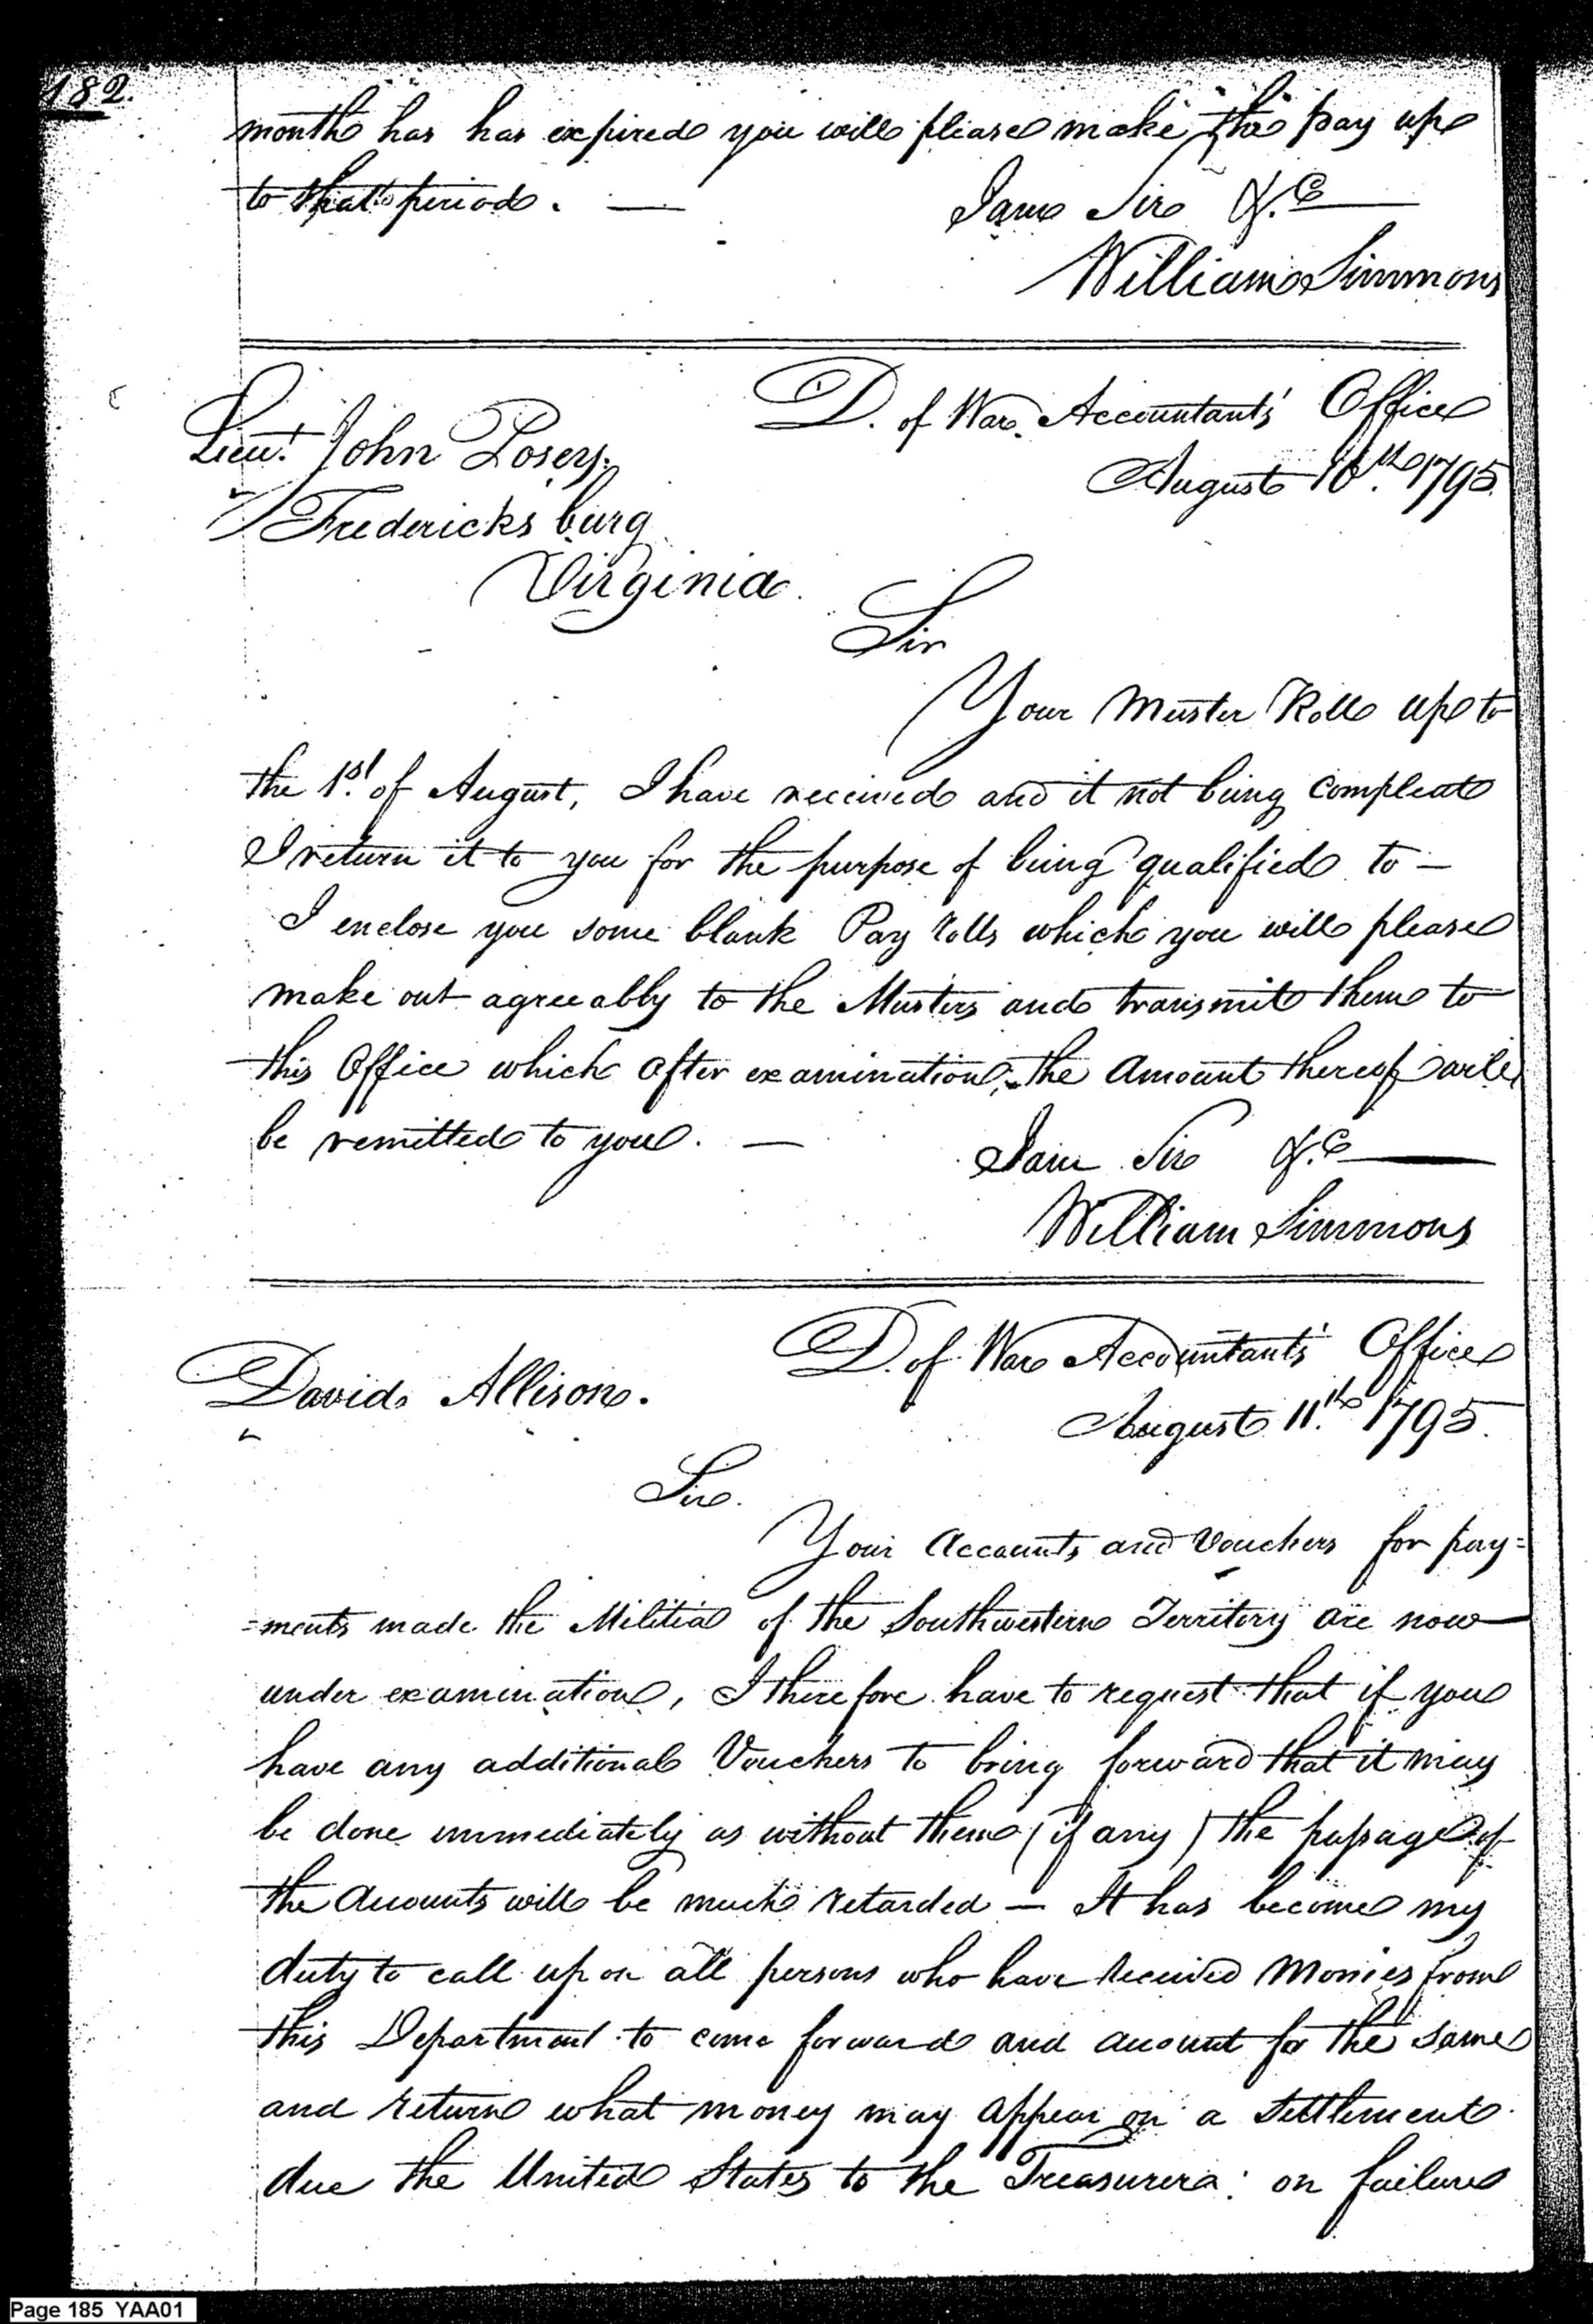 182.
month has has expired you will please make the pay up
to that period. —
I am Sir &c
William Simmons
D. of War Accountants' Office
August 10th 1795
Lieut. John Posey.
Fredericksburg
Virginia.
Sir
Your Muster Roll up to
the 1st of August, I have received and it not being compleat
I return it to you for the purpose of being qualified to —
I enclose you some blank Pay rolls which you will please
make out agreeably to the Musters and transmit them to
this Office which after examination, the Amount thereof will
be remitted to you. —
I am Sir &c
William Simmons
D. of War Accountant's Office
August 11th 1795.
David Allison.
Sir.
Your Accounts and Vouchers for pay=
=ments made the Militia of the Southwestern Territory are now
under examination, I therefore have to request that if you
have any additional Vouchers to bring forward that it may
be done immediately as without them (if any) the passage of
the Accounts will be much retarded — It has become my
duty to call upon all persons who have received Monies from
this Department to come forward and account for the same
and return what money may appear on a settlement
due the United States to the Treasurer: on failure
Page 185 YAA01